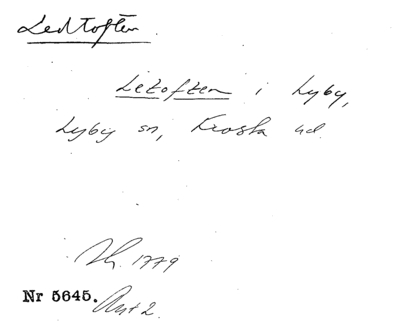 Ledtoften.
Letoften i Lyby,
Lyby sn, Frosta hd
Sk. 1779
Nr 5645.
Akt 2.